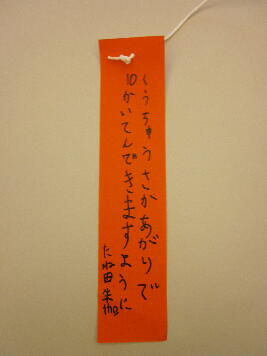 くうちゅうさかあがりで
10かいてんできますように
たね田朱加